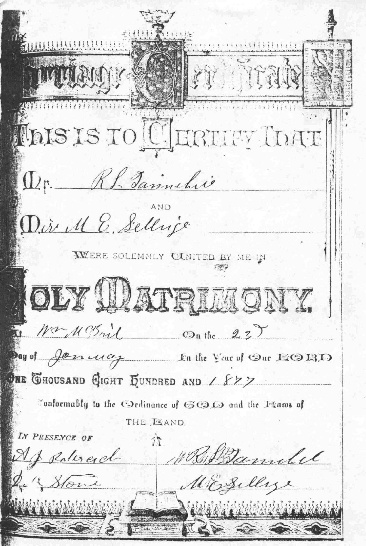 Marriage Certificate
THIS IS TO CERTIFY THAT
Mr. R L
AND
Miss M E Sellige
WERE SOLEMNLY UNITED BY ME IN
HOLY MATRIMONY.
At Wm On the 23d
Day of January In the Year of Our LORD
ONE THOUSAND EIGHT HUNDRED AND 1877
Conformably to the Ordinance of GOD and the Laws of
THE LAND.
IN PRESENCE OF
A J R L
Stone M E Sellige